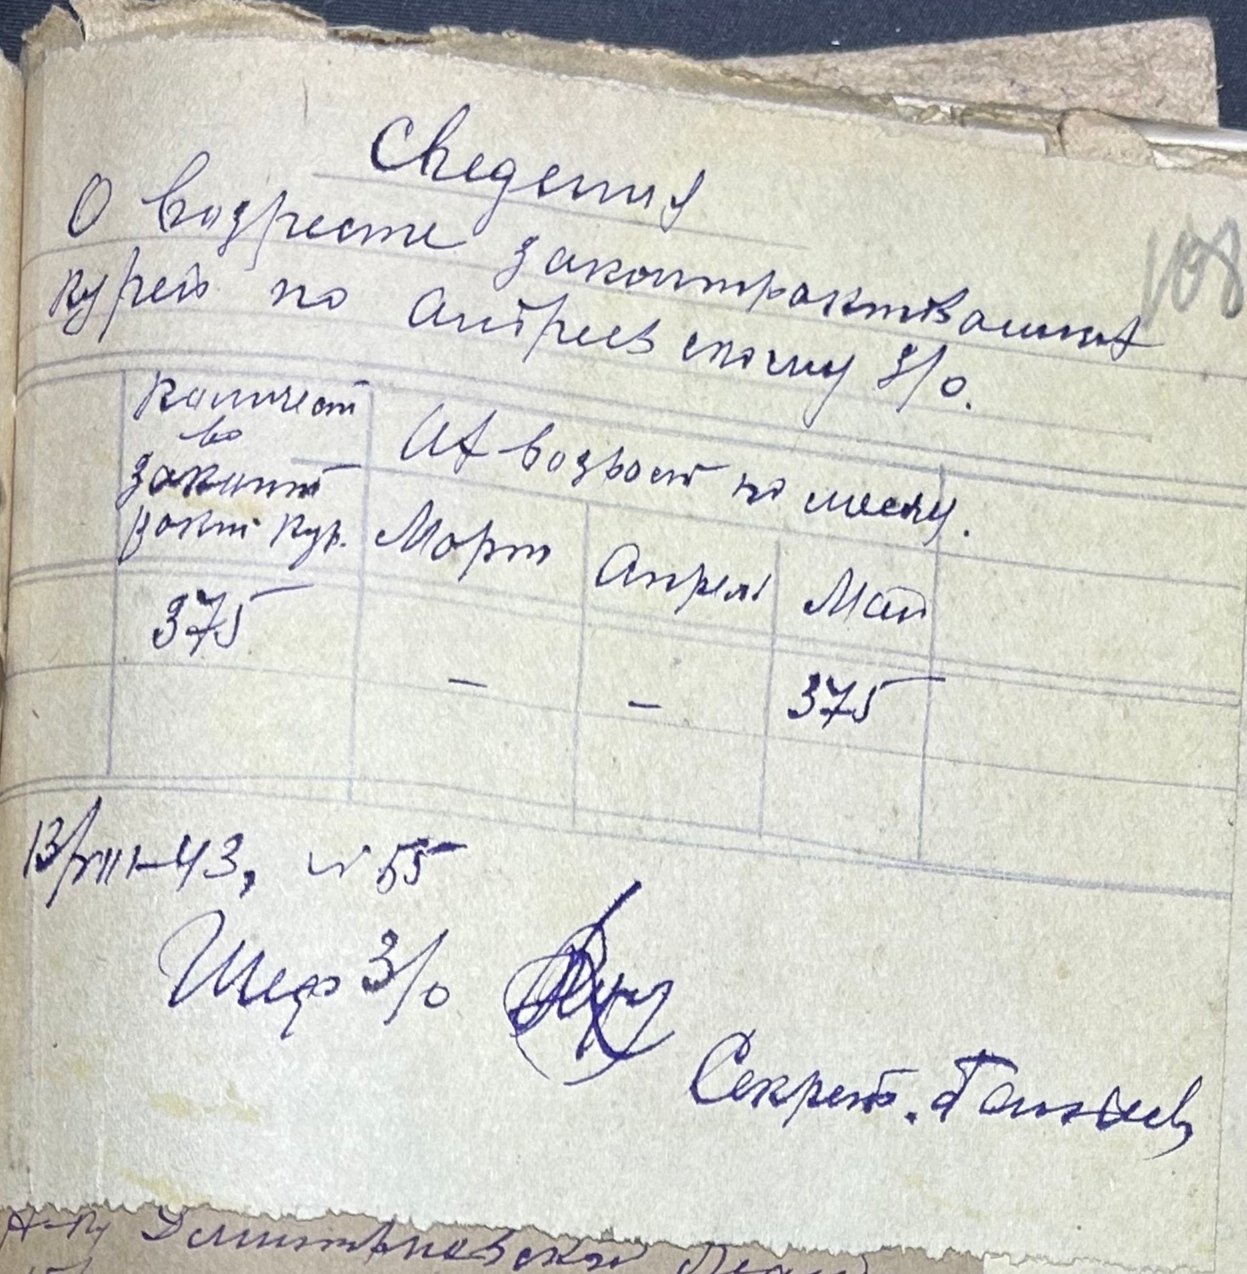 Сведения
108
О возрасте законтрактованных
курей по Андреевскому З/О.
Количест
во
законт
ракт кур.
Их возраст по месяц.
Март
Апрель
Май
375
–
–
375
13/VIII-43, № 55
Шеф З/О
Секрет.